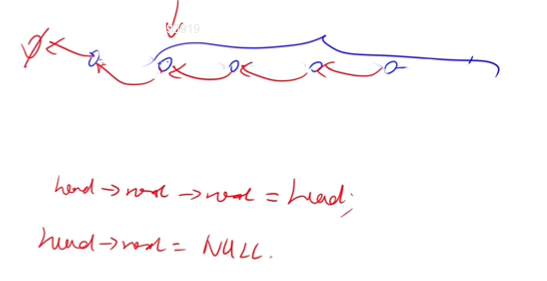 φ
head → next → next = head;
head → next = NULL.